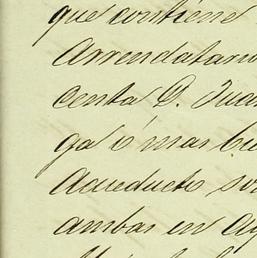 que contiene
Arrendatario
centa D. Juan
ga ó mas bu
Acueducto so
ambas en Ag